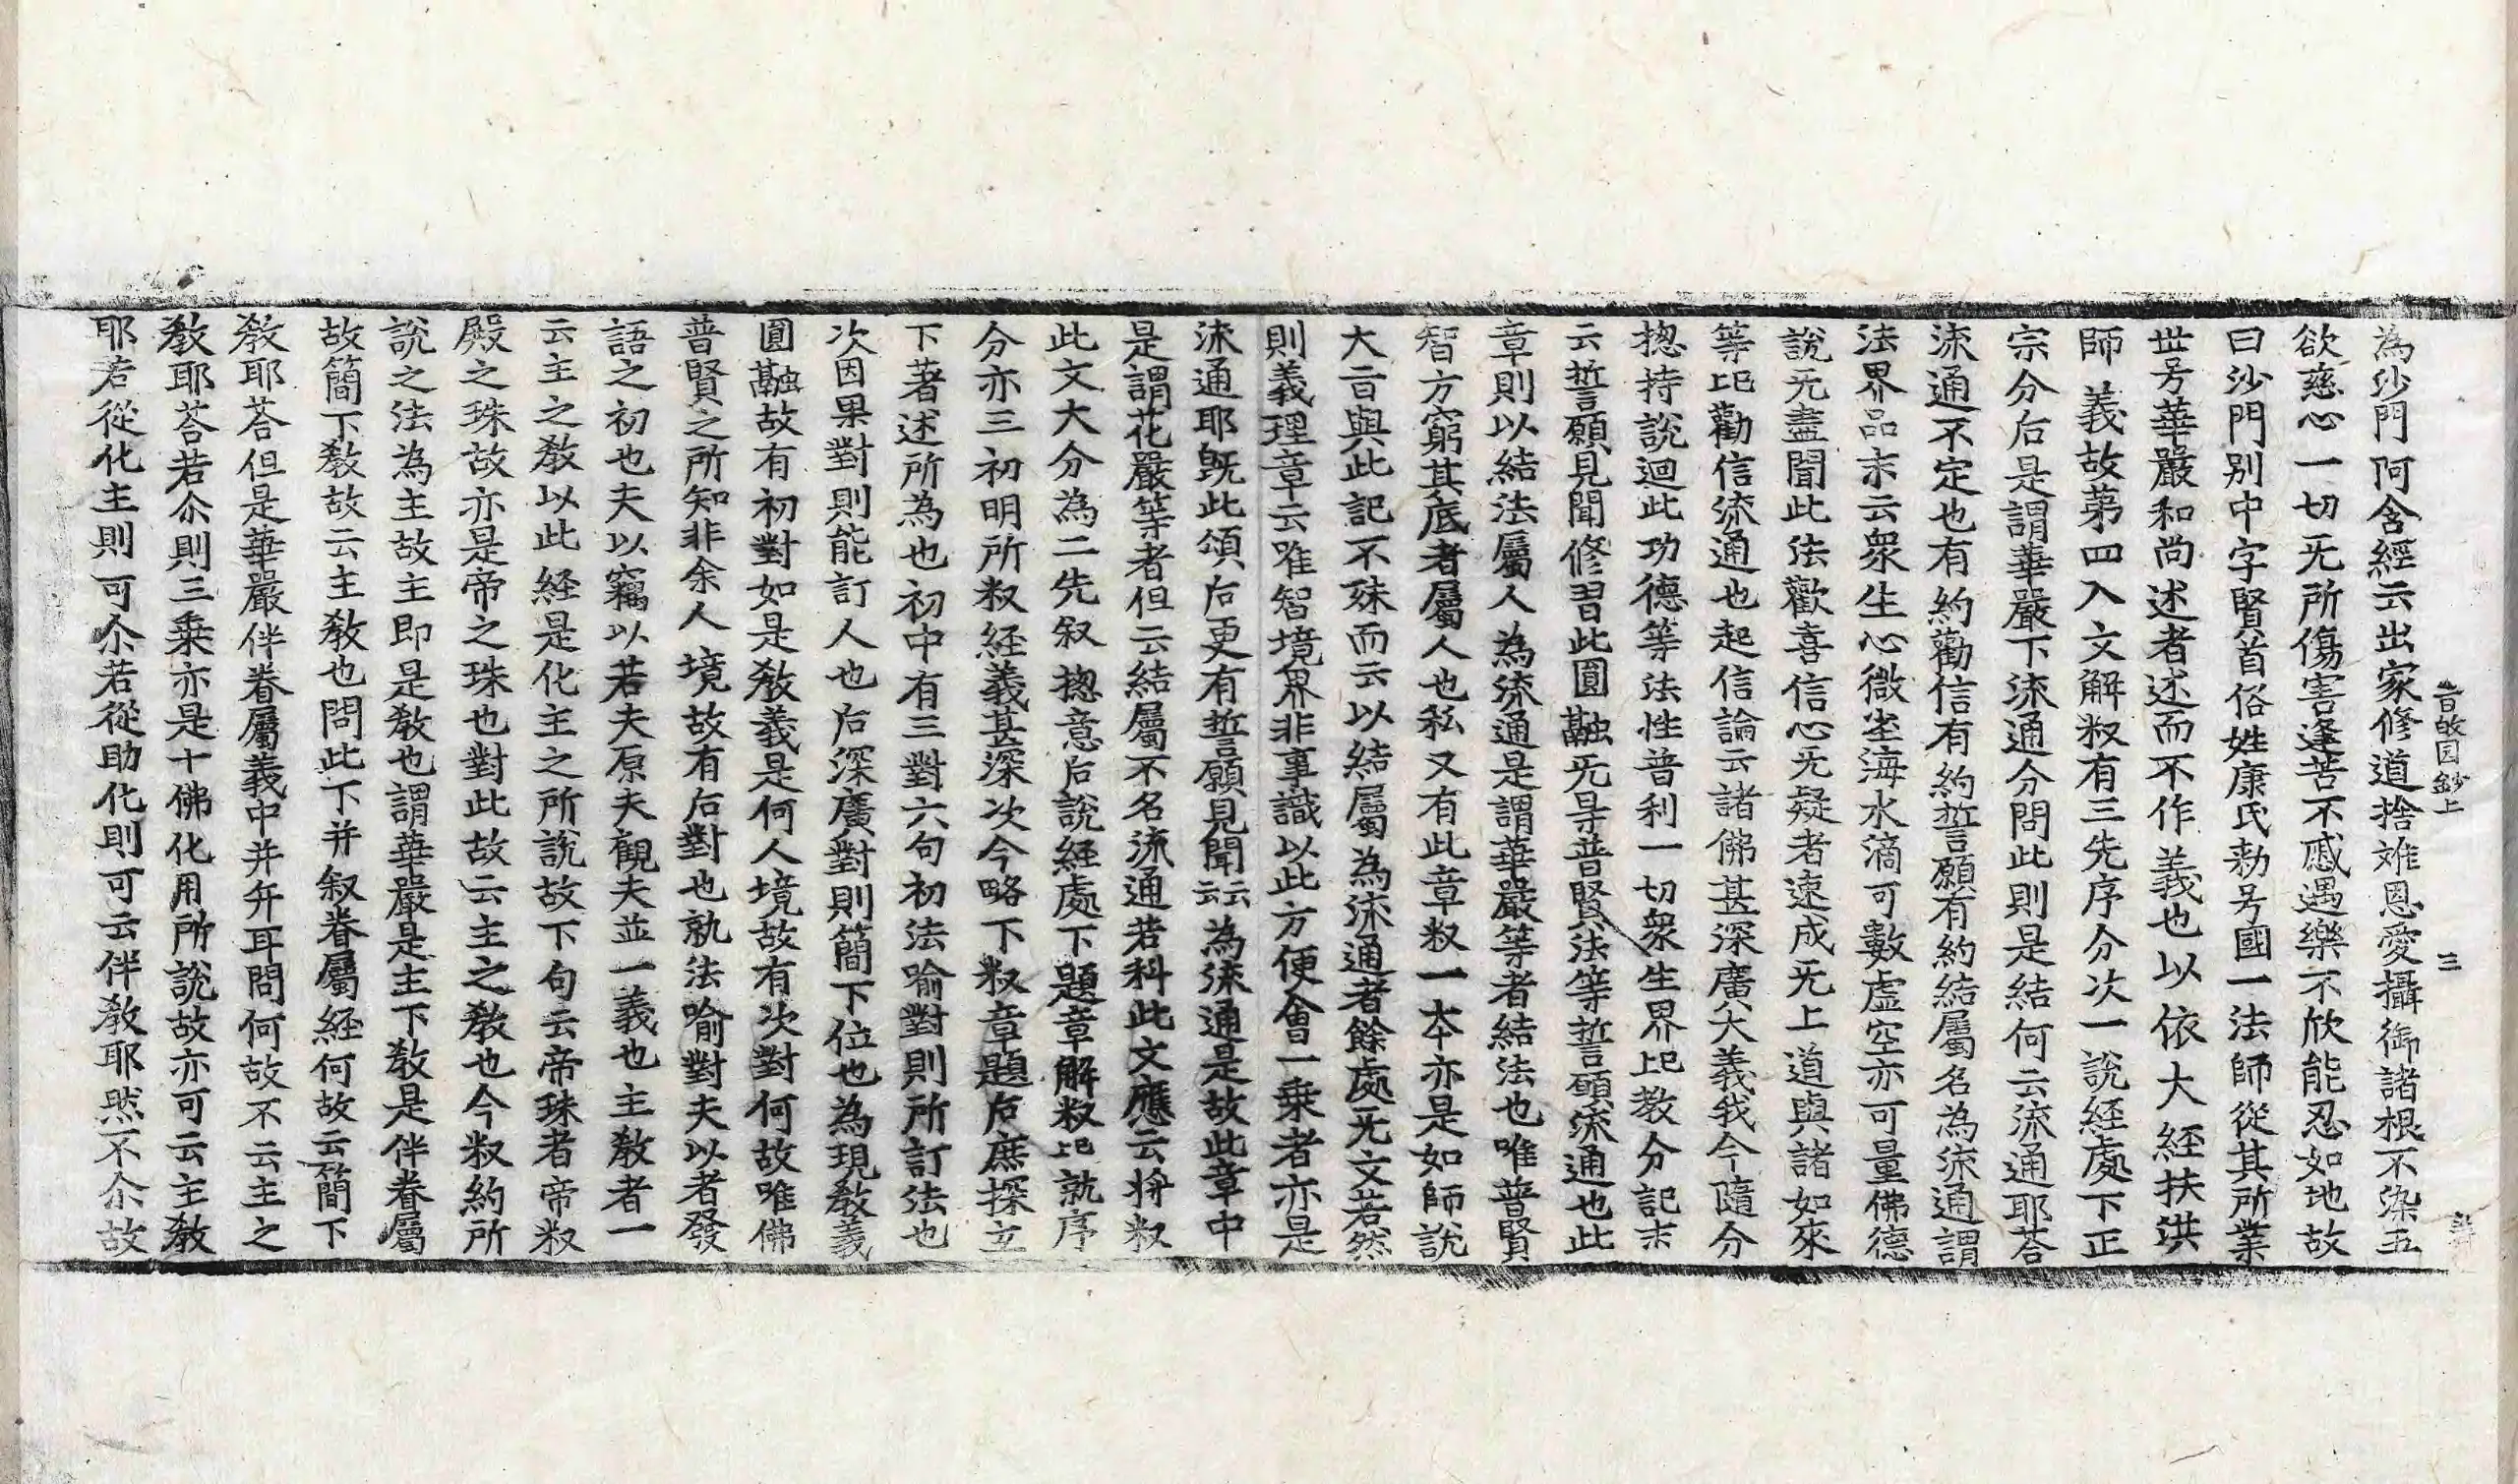 為沙門阿含經云出家修道捨難恩愛攝御諸根不染五
旨皈囙鈔上 三
欲慈心一切无所傷害逢苦不慼遇樂不欣能忍如地故
曰沙門別中字賢首俗姓康氏勅号國一法師從其所業
世号華嚴和尚述者述而不作義也以依大經扶洪
師義故第四入文解釈有三先序分次一說經處下正
宗分后是謂華嚴下流通分問此則是結何云流通耶荅
流通不定也有約勸信有約誓願有約結屬名為流通謂
法界品末云衆生心微塵海水滴可數虛空亦可量佛德
說无盡聞此法歡喜信心无疑者速成无上道與諸如來
等此勸信流通也起信論云諸佛甚深廣大義我今隨分
摠持說迴此功德等法性普利一切衆生界此教分記末
云誓願見聞修習此圓融无㝵普賢法等誓願流通也此
章則以結法屬人為流通是謂華嚴等者結法也唯普賢
智方窮其底者屬人也私又有此章釈一本亦是如師說
大旨與此記不殊而云以結屬為流通者餘處无文若然
則義理章云唯智境界非事識以此方便會一乘者亦是
流通耶旣此頌后更有誓願見聞云云為流通是故此章中
是謂花嚴等者但云結屬不名流通若科此文應云將釈
此文大分為二先叙摠意后說經處下題章解釈此就序
分亦三初明所釈經義甚深次今略下釈章題后庶探玄
下著述所為也初中有三對六句初法喻對則所訂法也
次因果對則能訂人也后深廣對則簡下位也為現教義
圓融故有初對如是教義是何人境故有次對何故唯佛
普賢之所知非余人境故有后對也就法喻對夫以者發
語之初也夫以竊以若夫原夫觀夫並一義也主教者一
云主之教以此經是化主之所說故下句云帝珠者帝釈
殿之珠故亦是帝之珠也對此故云主之教也今釈約所
說之法為主故主即是教也謂華嚴是主下教是伴眷屬
故簡下教故云主教也問此下并叙眷屬經何故云簡下
教耶荅但是華嚴伴眷屬義中并弁耳問何故不云主之
教耶荅若尒則三乘亦是十佛化用所說故亦可云主教
耶若從化主則可尒若從助化則可云伴教耶㸐不尒故